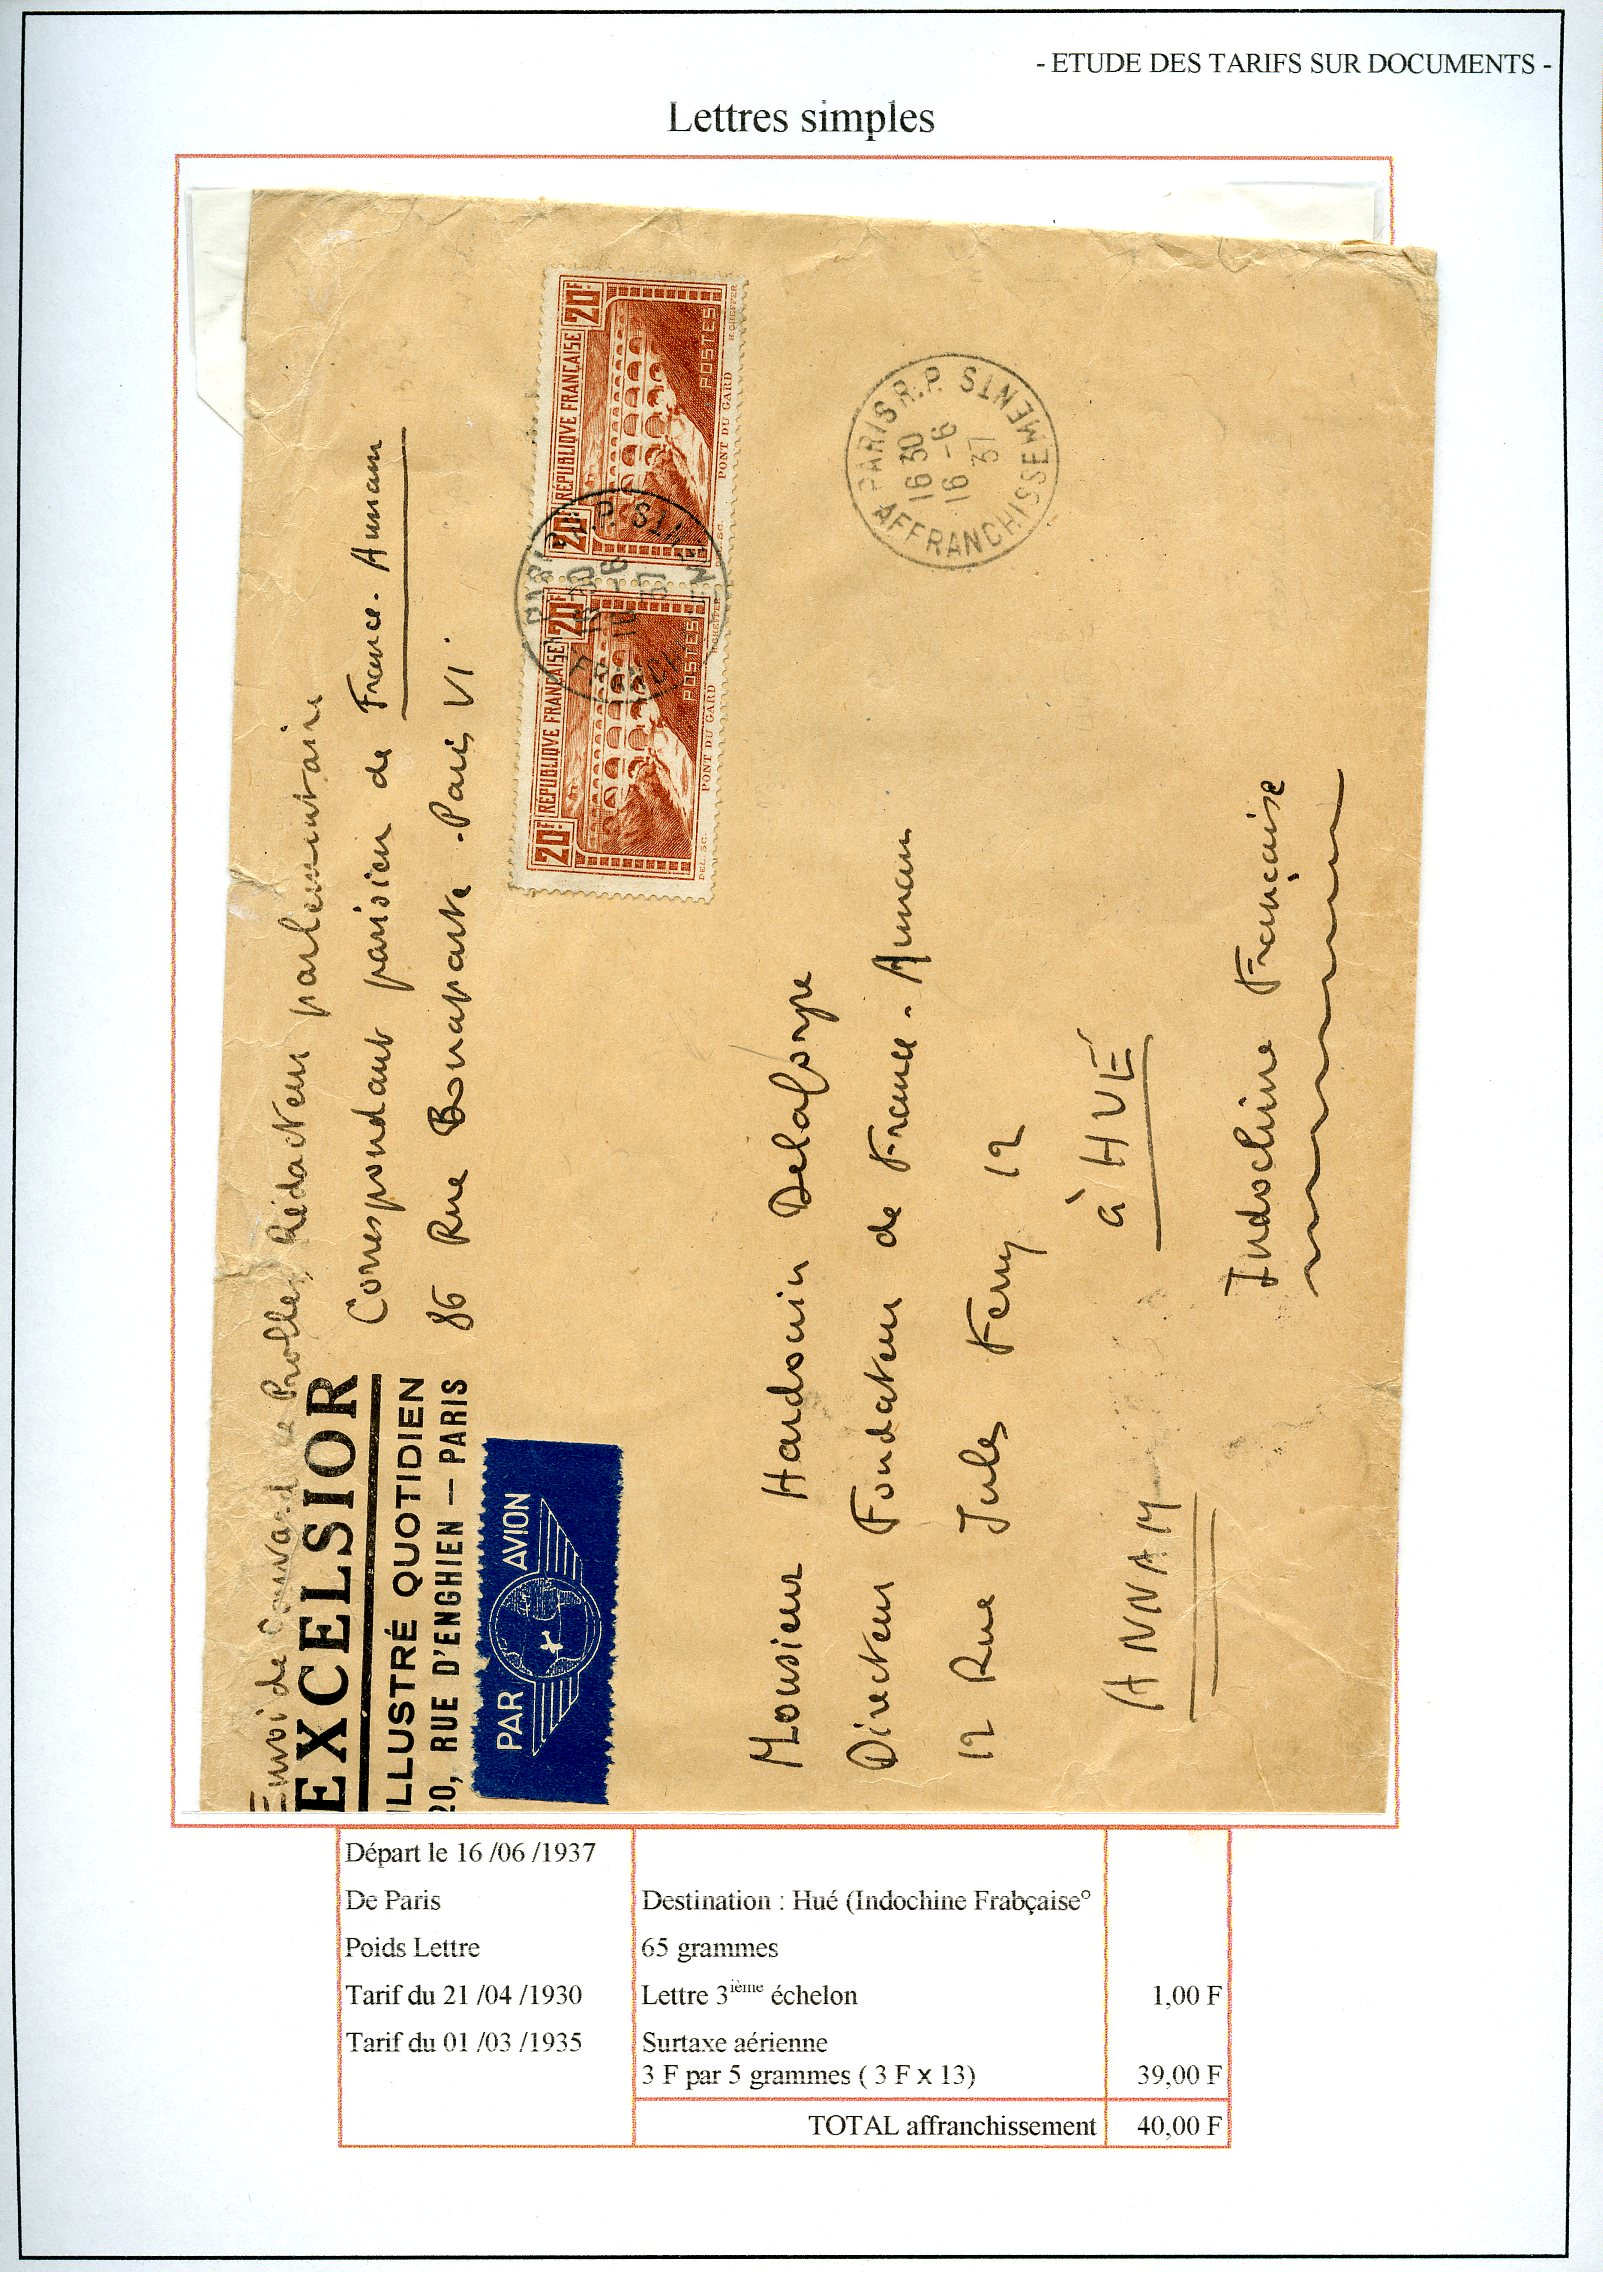 - ETUDE DES TARIFS SUR DOCUMENTS -
Lettres simples
Envoi de Rédacteur parlementaire
Correspondant parisien de France-Annam
86 Rue Bonaparte - Paris VI
EXCELSIOR
ILLUSTRÉ QUOTIDIEN
20, RUE D'ENGHIEN — PARIS
PAR AVION
20F RÉPUBLIQUE FRANÇAISE 20F
POSTES
PONT DU GARD
DEL. SC. H.CHEFFER
20F RÉPUBLIQUE FRANÇAISE 20F
POSTES
PONT DU GARD
DEL. SC. H.CHEFFER
PARIS R.P. AFFRANCHISSEMENTS
16 30
16 -6
37
PARIS R.P. AFFRANCHISSEMENTS
16 30
16 -6
37
Monsieur Hardouin Delaforge
Directeur Fondateur de France-Annam
12 Rue Jules Ferry 12
à HUÉ
ANNAM
Indochine Française
Départ le 16 /06 /1937
De Paris Destination : Hué (Indochine Frabçaise°
Poids Lettre 65 grammes
Tarif du 21 /04 /1930 Lettre 3ième échelon 1,00 F
Tarif du 01 /03 /1935 Surtaxe aérienne
3 F par 5 grammes ( 3 F x 13) 39,00 F
TOTAL affranchissement 40,00 F